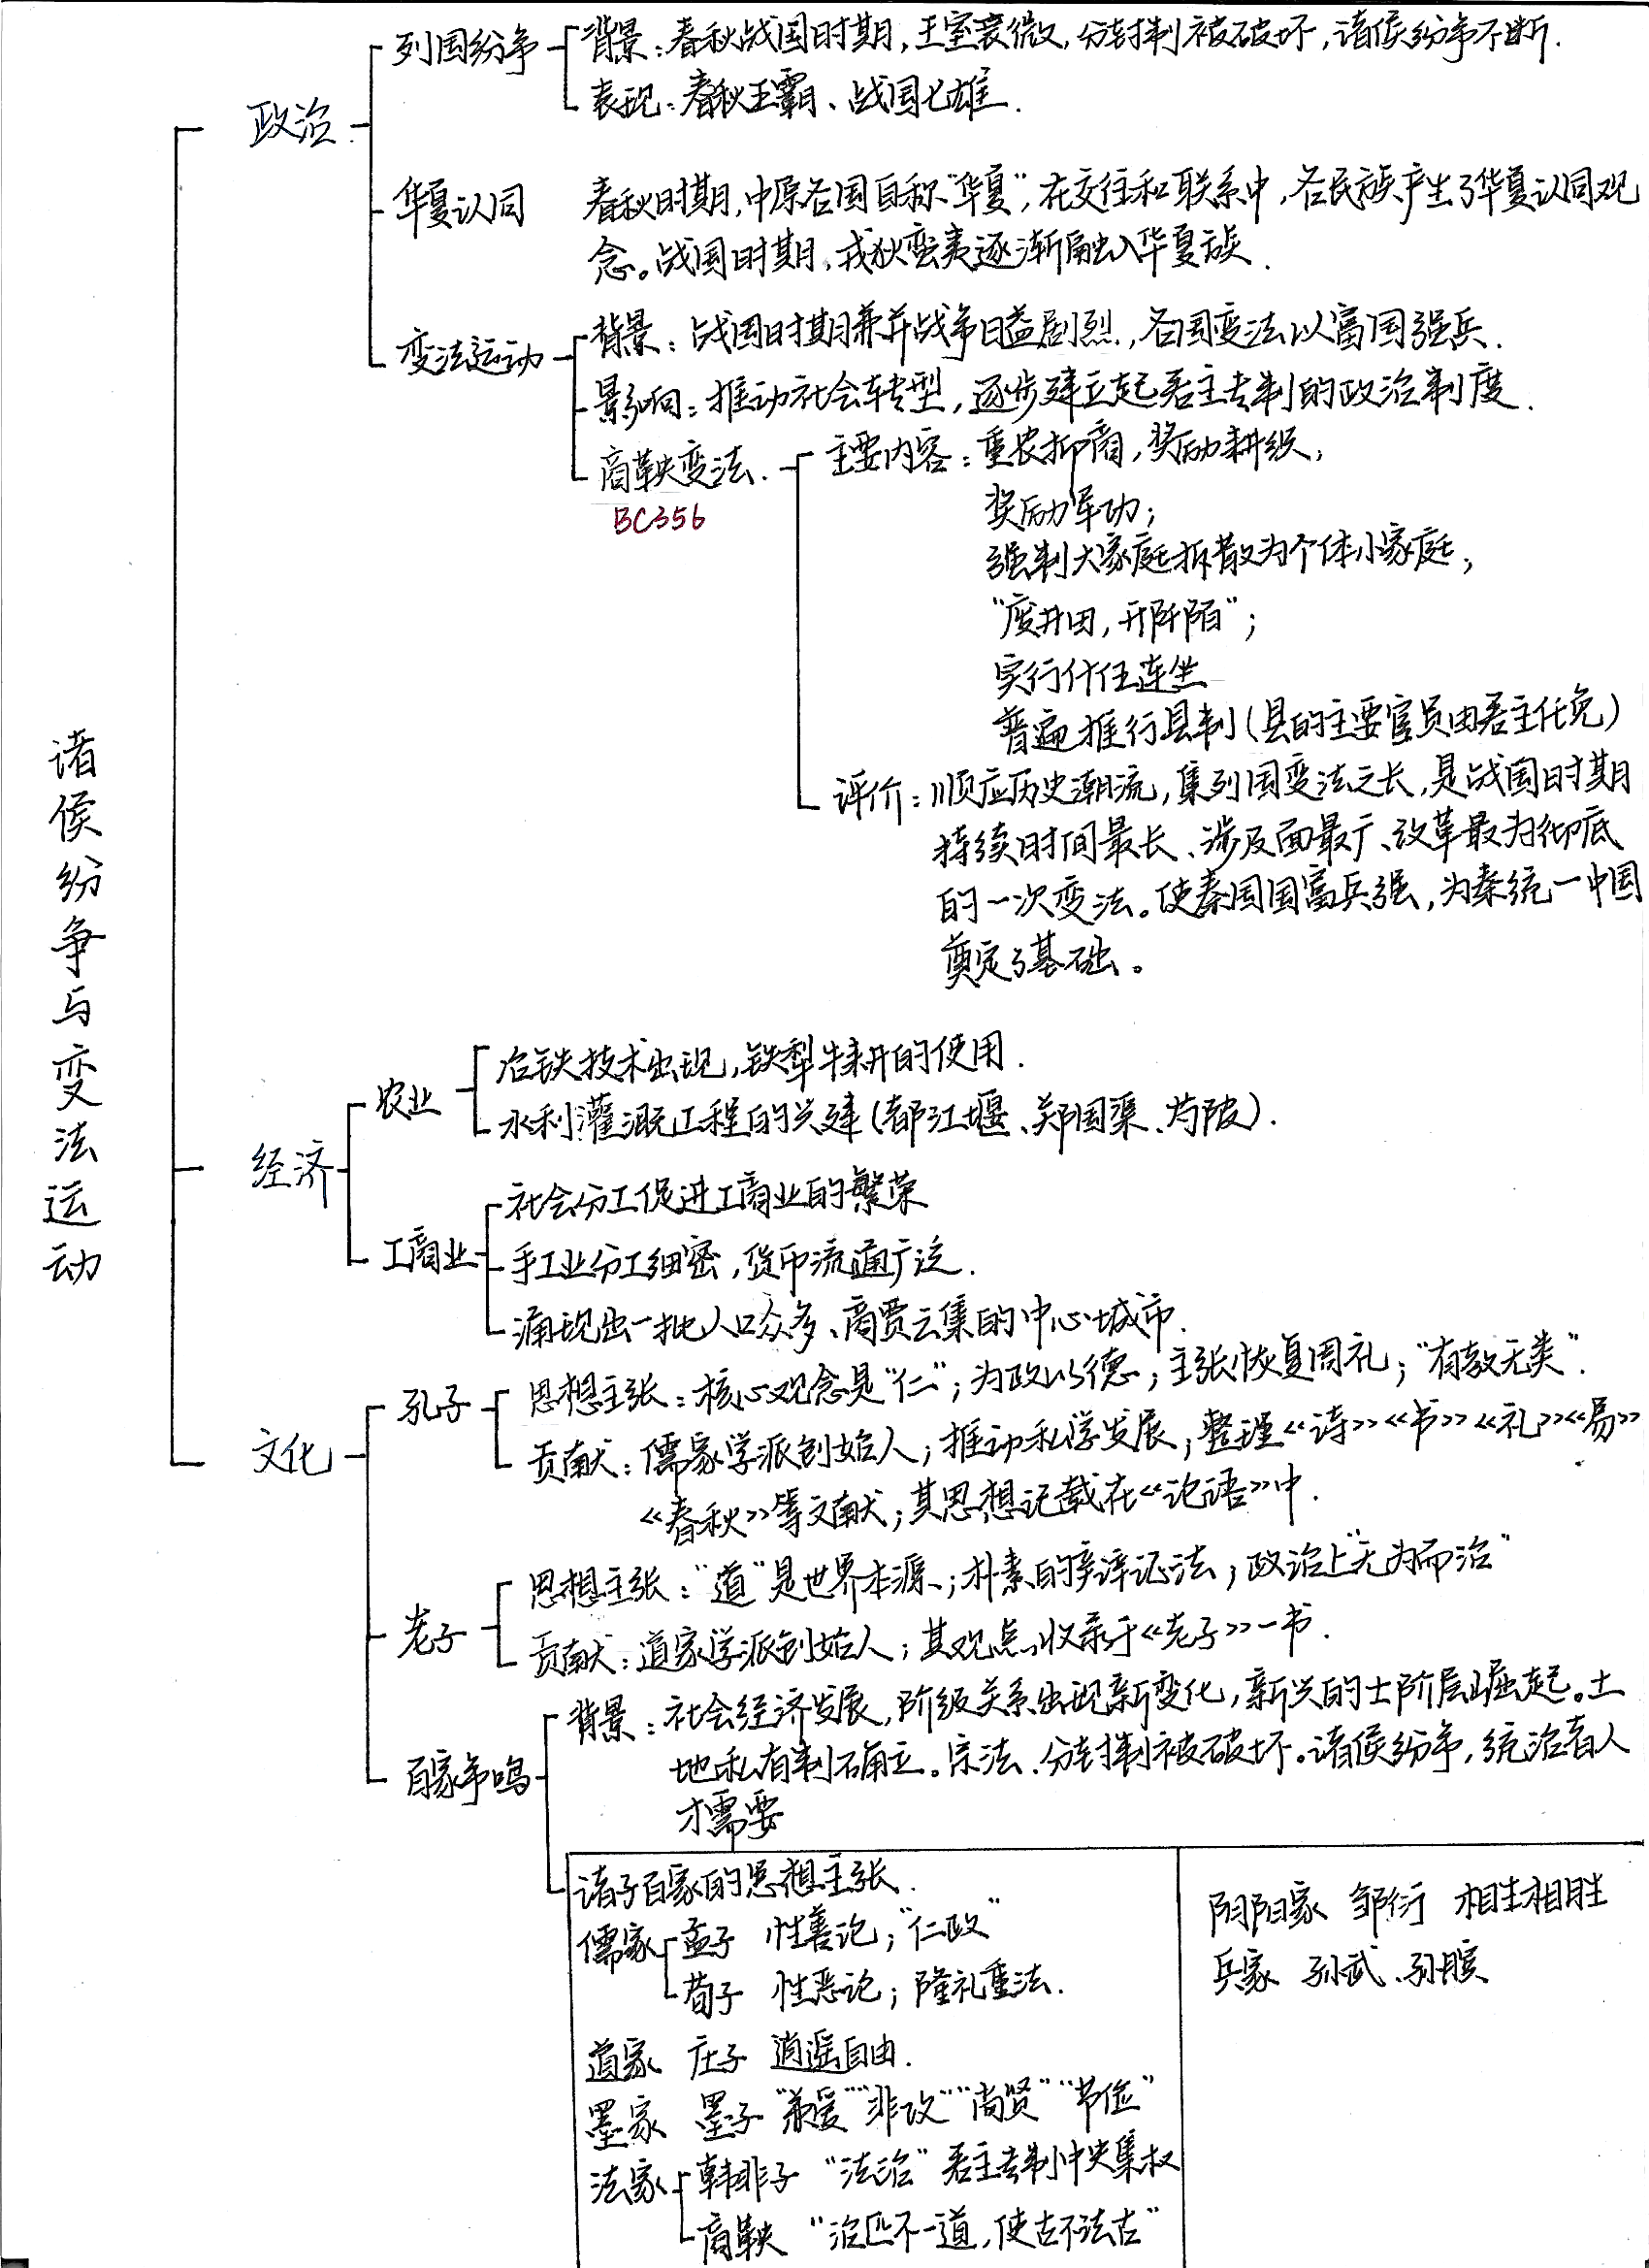 诸侯纷争与变法运动
政治
列国纷争
背景：春秋战国时期，王室衰微，分封制被破坏，诸侯纷争不断．
表现：春秋五霸、战国七雄．
华夏认同
春秋时期，中原各国自称“华夏”，在交往和联系中，各民族产生了华夏认同观
念。战国时期，戎狄蛮夷逐渐融入华夏族．
变法运动
背景：战国时期兼并战争日益剧烈，各国变法以富国强兵．
影响：推动社会转型，逐步建立起君主专制的政治制度．
商鞅变法．
BC356
主要内容：重农抑商，奖励耕织；
奖励军功；
强制大家庭拆散为个体小家庭；
“废井田，开阡陌”；
实行什伍连坐
普遍推行县制（县的主要官员由君主任免）
评价：顺应历史潮流，集列国变法之长，是战国时期
持续时间最长、涉及面最广、改革最为彻底
的一次变法。使秦国国富兵强，为秦统一中国
奠定了基础。
经济
农业
冶铁技术出现，铁犁牛耕的使用．
水利灌溉工程的兴建（都江堰、郑国渠、芍陂）．
工商业
社会分工促进工商业的繁荣
手工业分工细密，货币流通广泛．
涌现出一批人口众多、商贾云集的中心城市．
文化
孔子
思想主张：核心观念是“仁”；为政以德；主张恢复周礼；“有教无类”．
贡献：儒家学派创始人；推动私学发展；整理《诗》《书》《礼》《易》
《春秋》等文献；其思想记载在《论语》中．
老子
思想主张：“道”是世界本源；朴素的辩证法；政治上“无为而治”
贡献：道家学派创始人；其观点收录于《老子》一书．
百家争鸣
背景：社会经济发展，阶级关系出现新变化，新兴的士阶层崛起。土
地私有制确立。宗法、分封制被破坏。诸侯纷争，统治者人
才需要
诸子百家的思想主张．
儒家
孟子 性善论；“仁政”
荀子 性恶论；隆礼重法．
道家 庄子 逍遥自由．
墨家 墨子 “兼爱”“非攻”“尚贤”“节俭”
法家
韩非子 “法治” 君主专制中央集权
商鞅 “治不一道，使古不法古”
阴阳家 邹衍 相生相胜
兵家 孙武、孙膑